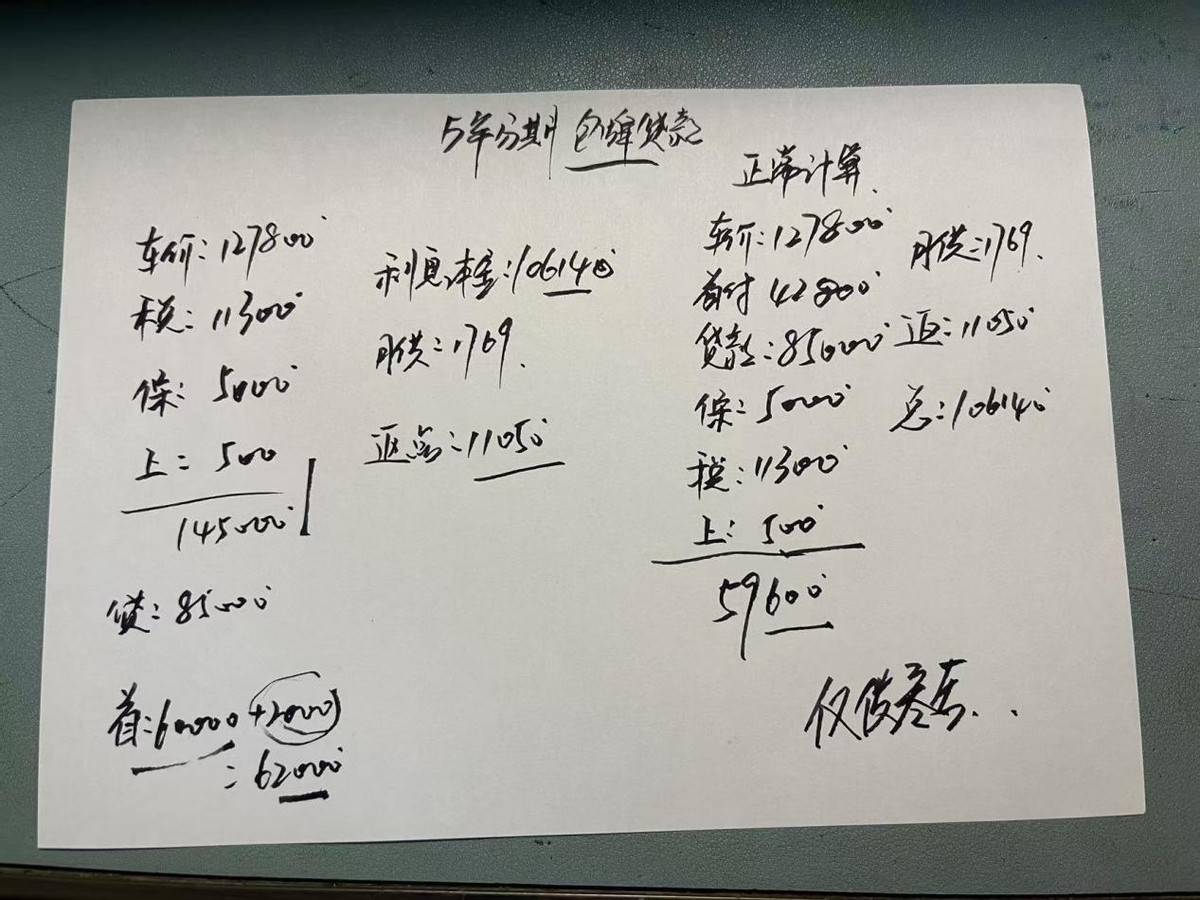 5年分期 包牌贷款
车价:127800
税:11300
保:5000
上:500
145000
贷:85000
首:60000+2000
:62000
利息本金:106140
月供:1769.
返点:11050
正常计算.
车价:127800
首付 42800
贷款:85000
保:5000
税:11300
上:500
59600
月供:1769.
返:11050
总:106140
仅供参考...